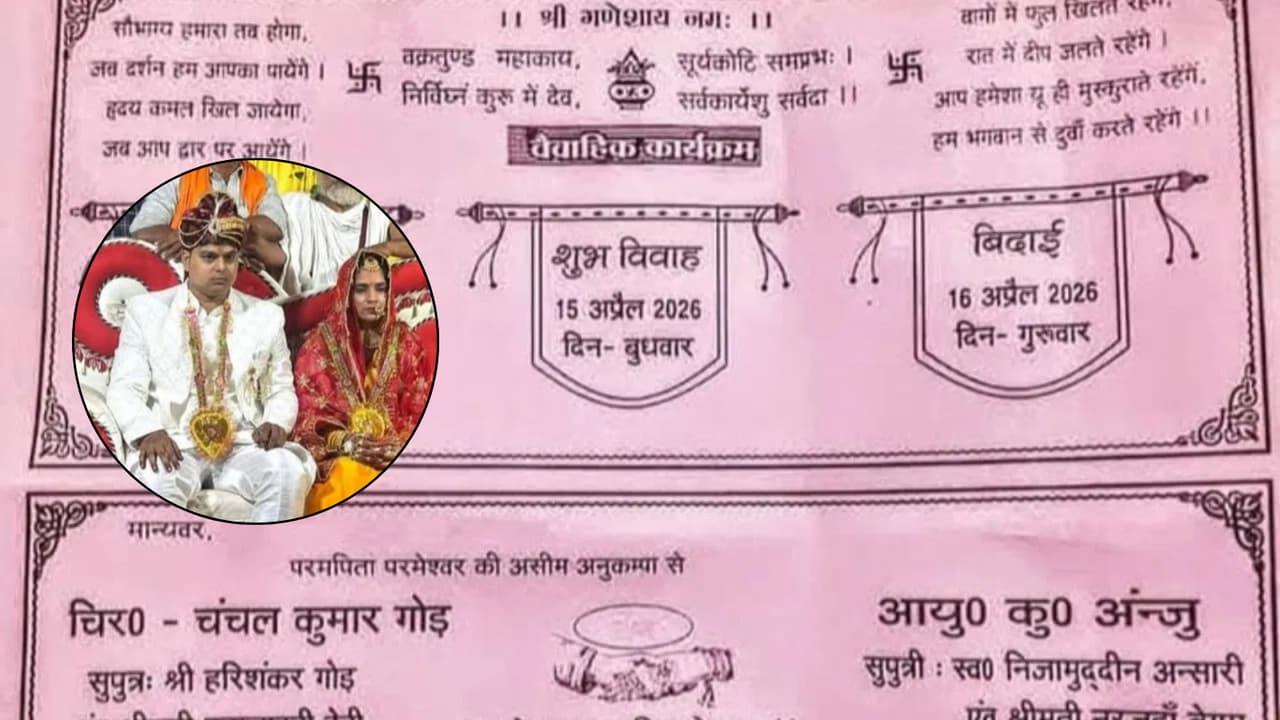 ।। श्री गणेशाय नमः ।।
सौभाग्य हमारा तब होगा,
जब दर्शन हम आपका पायेंगे ।
हृदय कमल खिल जायेगा,
जब आप द्वार पर आयेंगे ।
वक्रतुण्ड महाकाय,
निर्विघ्नं कुरू में देव,
सूर्यकोटि समप्रभः ।
सर्वकार्येशु सर्वदा ।।
बागों में फुल खिलते रहेंगे,
रात में दीप जलते रहेंगे ।
आप हमेशा यू ही मुस्कुराते रहेंगें,
हम भगवान से दुवाँ करते रहेंगे ।।
वैवाहिक कार्यक्रम
शुभ विवाह
15 अप्रैल 2026
दिन- बुधवार
बिदाई
16 अप्रैल 2026
दिन- गुरूवार
मान्यवर,
परमपिता परमेश्वर की असीम अनुकम्पा से
चिर0 - चंचल कुमार गोड़
सुपुत्रः श्री हरिशंकर गोड़
आयु0 कु0 अंन्जु
सुपुत्री : स्व0 निजामुद्दीन अन्सारी
एंव श्रीमती